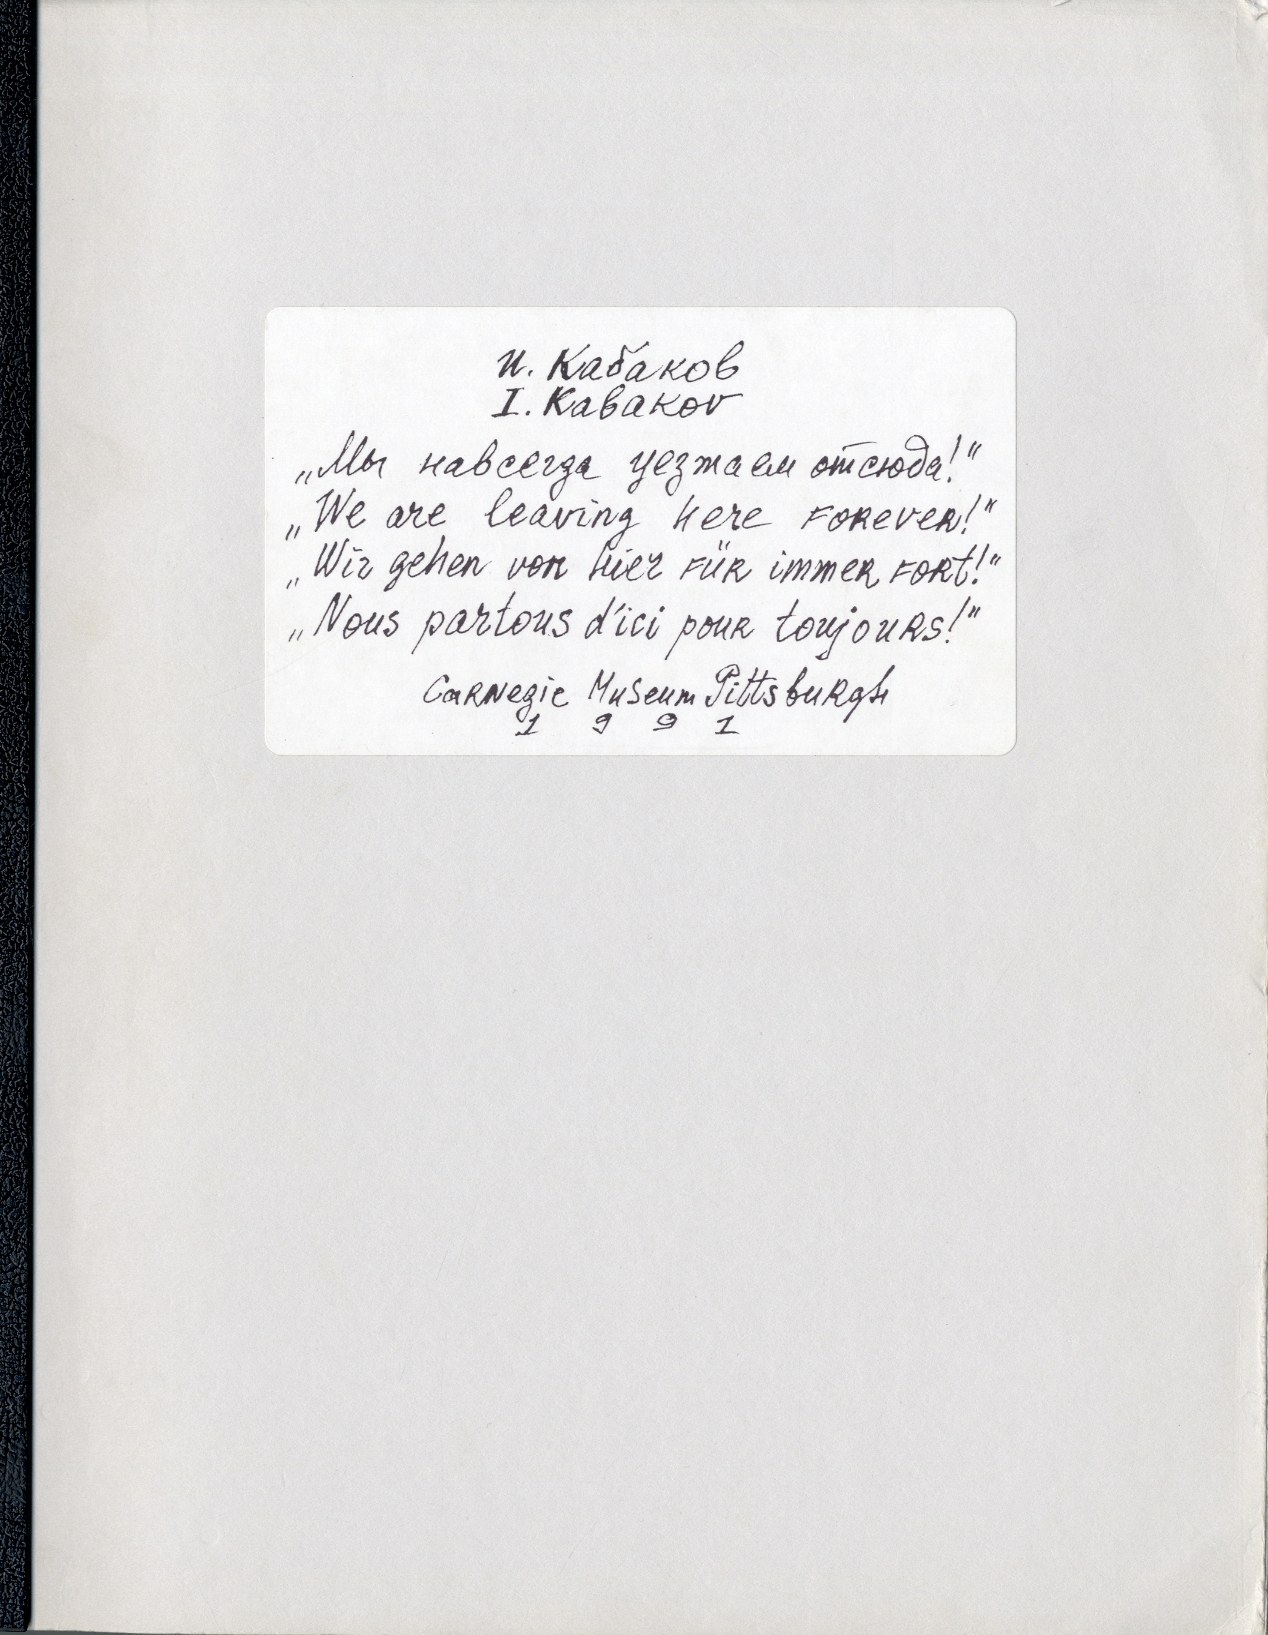 И. Кабаков
I. Kabakov
„Мы навсегда уезжаем отсюда!“
„We are leaving here FOREVER!“
„Wir gehen von hier FÜR immer FORt!“
„Nous partous d'ici pour toujours!“
Carnegie Museum Pittsburgh
1991